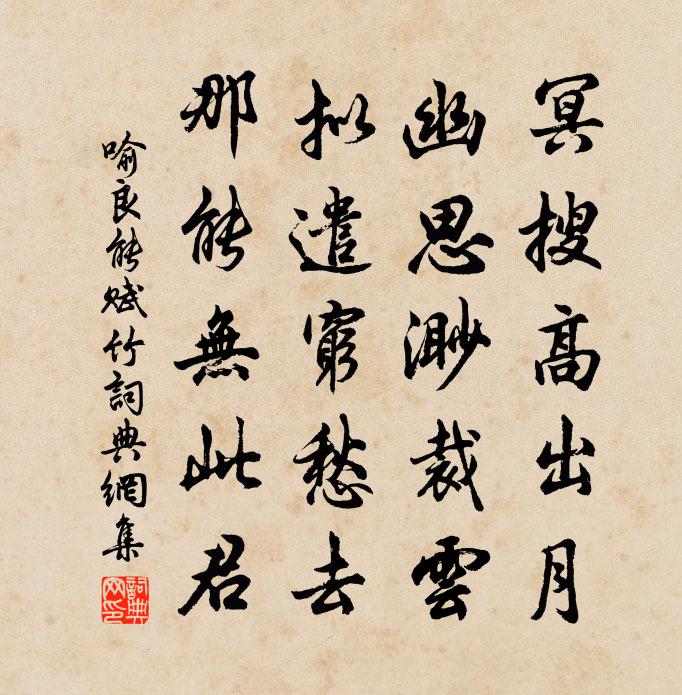 冥搜高出月
幽思渺裁雲
拟遣窮愁去
那能無此君
喻良能賦竹詞典網集
詞典網印